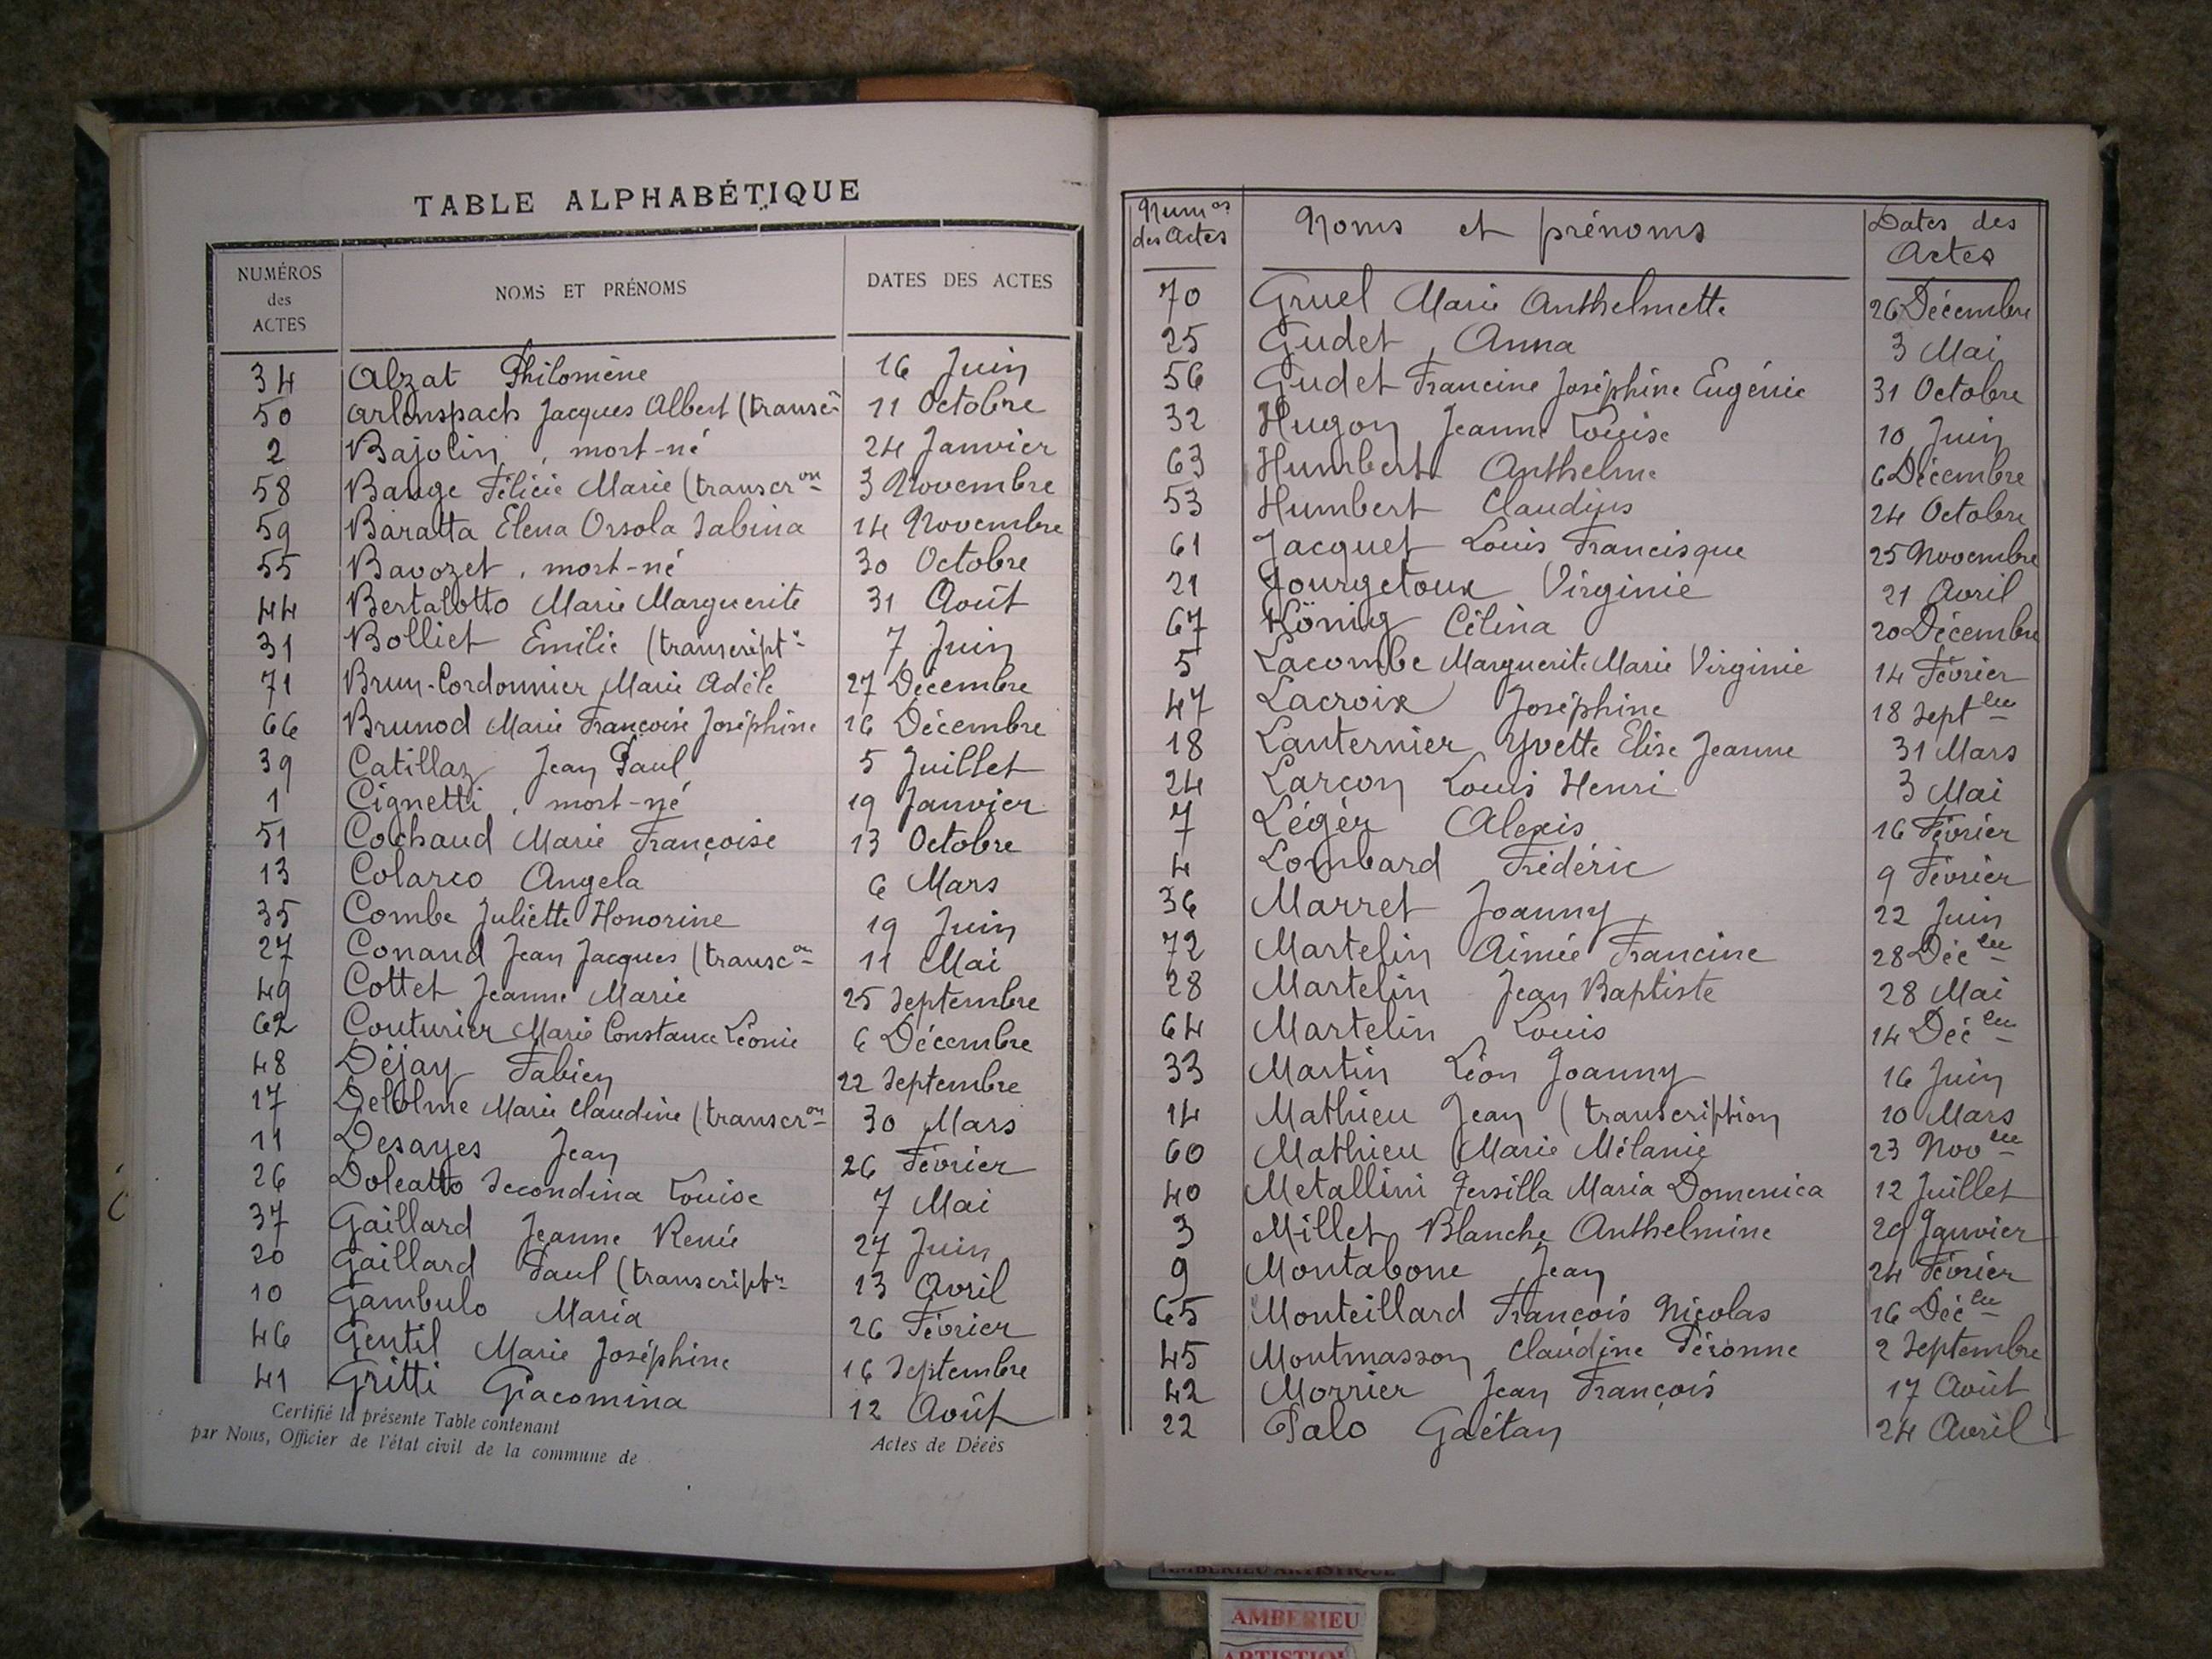 TABLE ALPHABÉTIQUE
NUMÉROS des ACTES NOMS ET PRÉNOMS DATES DES ACTES
34 Alzat Philomène 16 Juin
50 Arlenspach Jacques Albert (transc.on 11 Octobre
2 Bajolin, mort-né 24 Janvier
58 Bauge Félicie Marie (transcr.on 3 Novembre
59 Baratta Elena Orsola Sabina 14 Novembre
55 Bavozet, mort-né 30 Octobre
44 Bertalotto Marie Marguerite 31 Août
31 Bolliet Emilie (transcript.n 7 Juin
71 Brun-Cordonnier Marie Adèle 27 Décembre
66 Brunod Marie Françoise Joséphine 16 Décembre
39 Catillaz Jean Paul 5 Juillet
1 Cignetti, mort-né 19 Janvier
51 Cochaud Marie Françoise 13 Octobre
13 Colarco Angela 6 Mars
35 Combe Juliette Honorine 19 Juin
27 Conand Jean Jacques (transc.on 11 Mai
49 Cottet Jeanne Marie 25 Septembre
62 Couturier Marie Constance Léonie 6 Décembre
48 Déjay Fabien 22 Septembre
17 Delolme Marie Claudine (transcr.on 30 Mars
11 Desayes Jean 26 Février
26 Doleatto Secondina Louise 7 Mai
37 Gaillard Jeanne Renée 27 Juin
20 Gaillard Paul (transcript.n 13 Avril
10 Gambulo Maria 26 Février
46 Gentil Marie Joséphine 16 Septembre
41 Gritti Giacomina 12 Août
Certifié la présente Table contenant Actes de Décès
par Nous, Officier de l'état civil de la commune de
Num.os des Actes Noms et prénoms Dates des Actes
70 Gruel Marie Anthelmette 26 Décembre
25 Gudet, Anna 3 Mai
56 Gudet Francine Joséphine Eugénie 31 Octobre
32 Hugon Jeanne Louise 10 Juin
63 Humbert Anthelme 6 Décembre
53 Humbert Claudius 24 Octobre
61 Jacquet Louis Francisque 25 Novembre
21 Jourgetoux Virginie 21 Avril
67 König Célina 20 Décembre
5 Lacombe Marguerite Marie Virginie 14 Février
47 Lacroix Joséphine 18 Sept.bre
18 Lanternier Yvette Elise Jeanne 31 Mars
24 Larçon Louis Henri 3 Mai
7 Léger Alexis 16 Février
4 Lombard Frédéric 9 Février
36 Marret Joanny 22 Juin
72 Martelin Aimée Francine 28 Déc.bre
28 Martelin Jean Baptiste 28 Mai
64 Martelin Louis 14 Déc.bre
33 Martin Léon Joanny 16 Juin
14 Mathieu Jean (transcription 10 Mars
60 Mathieu Marie Mélanie 23 Nov.bre
40 Metallini Jersilla Maria Domenica 12 Juillet
3 Millet Blanche Anthelmine 29 Janvier
9 Montabone Jean 24 Février
65 Monteillard François Nicolas 16 Déc.bre
45 Montmasson Claudine Péronne 2 Septembre
42 Morrier Jean François 17 Août
22 Palo Gaétan 24 Avril
AMBERIEU ARTISTIQUE
AMBERIEU
ARTISTIQU